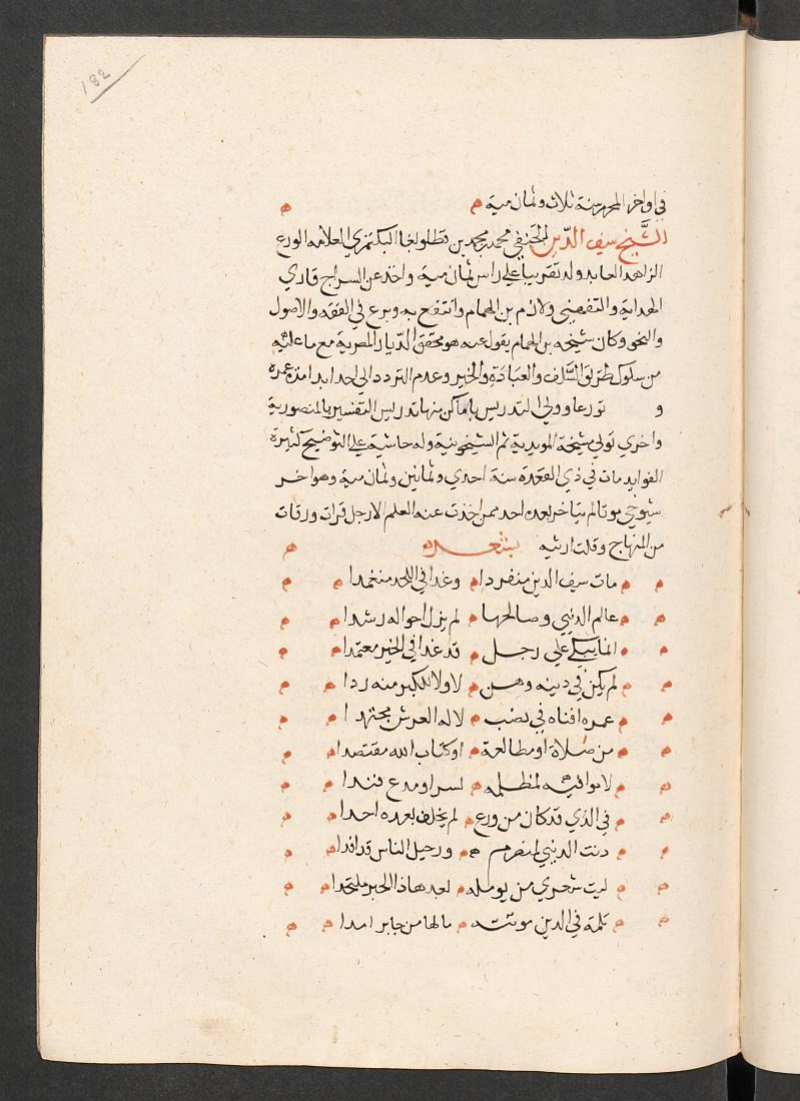 182
في اواخر المحرم سنة ثلاث وثمان مية م م
الشيخ سيف الدين الحنفي محمد بن محمد بن قطلوبغا البكتمري العلامه الورع
الزاهد العابد ولد تقريبا علي راس ثمان مية واخذ عن السراج قاري
الهداية والتفهني ولازم بن الهمام وانتفع به وبرع في الفقه والاصول
والنحو وكان شيخه بن الهمام يقول عنه هو محقق الديار المصرية مع ما عليه
من سلوك طريق السلف والعبادة والخير وعدم التردد الي احد ابدا مدة عمره
و تورعا وولي التدريس باماكن منها تدريس التفسير بالمنصورية
واخري تولي مشيخة المويدية ثم الشيخونية وله حاشية علي التوضيح كثيرة
الفوايد مات في ذي القعدة سنة احدي وثمانين وثمان مية وهو اخر
شيوخي موتا لم يتاخر بعده احد ممن اخذت عنه العلم الا رجل قرات ورقات
من المنهاج وقلت ارثيه م
م م مات سيف الدين منفردا م وغدا في اللحد منغمدا م م
م م عالم الدنيي وصالحها م لم يزل احواله رشدا م م
م م انما يبكي علي رجل م قد غدا في الخير معتمدا م م
م م لم يكن في دينه وهن م لا ولا للكبر منه ردا م م
م م عمره افناه في نصب م لاله العرش مجتهدا م م
م م من صلاة او مطالعة م او كتاب الله مقتصدا م م
م م لا يوافيه لمظلمه م بسر او مدع فندا م م
م م في الذي قد كان من ورع م لم يخلف بعده احدا م م
م م دنت الدنيي لمنصرم م ورحيل الناس قد افدا م م
م م ليت شعري من يومله م بعد هذا الحبر ملتحدا م م
م م ثلمة في الدين موتته م مالها من جابر امدا م م